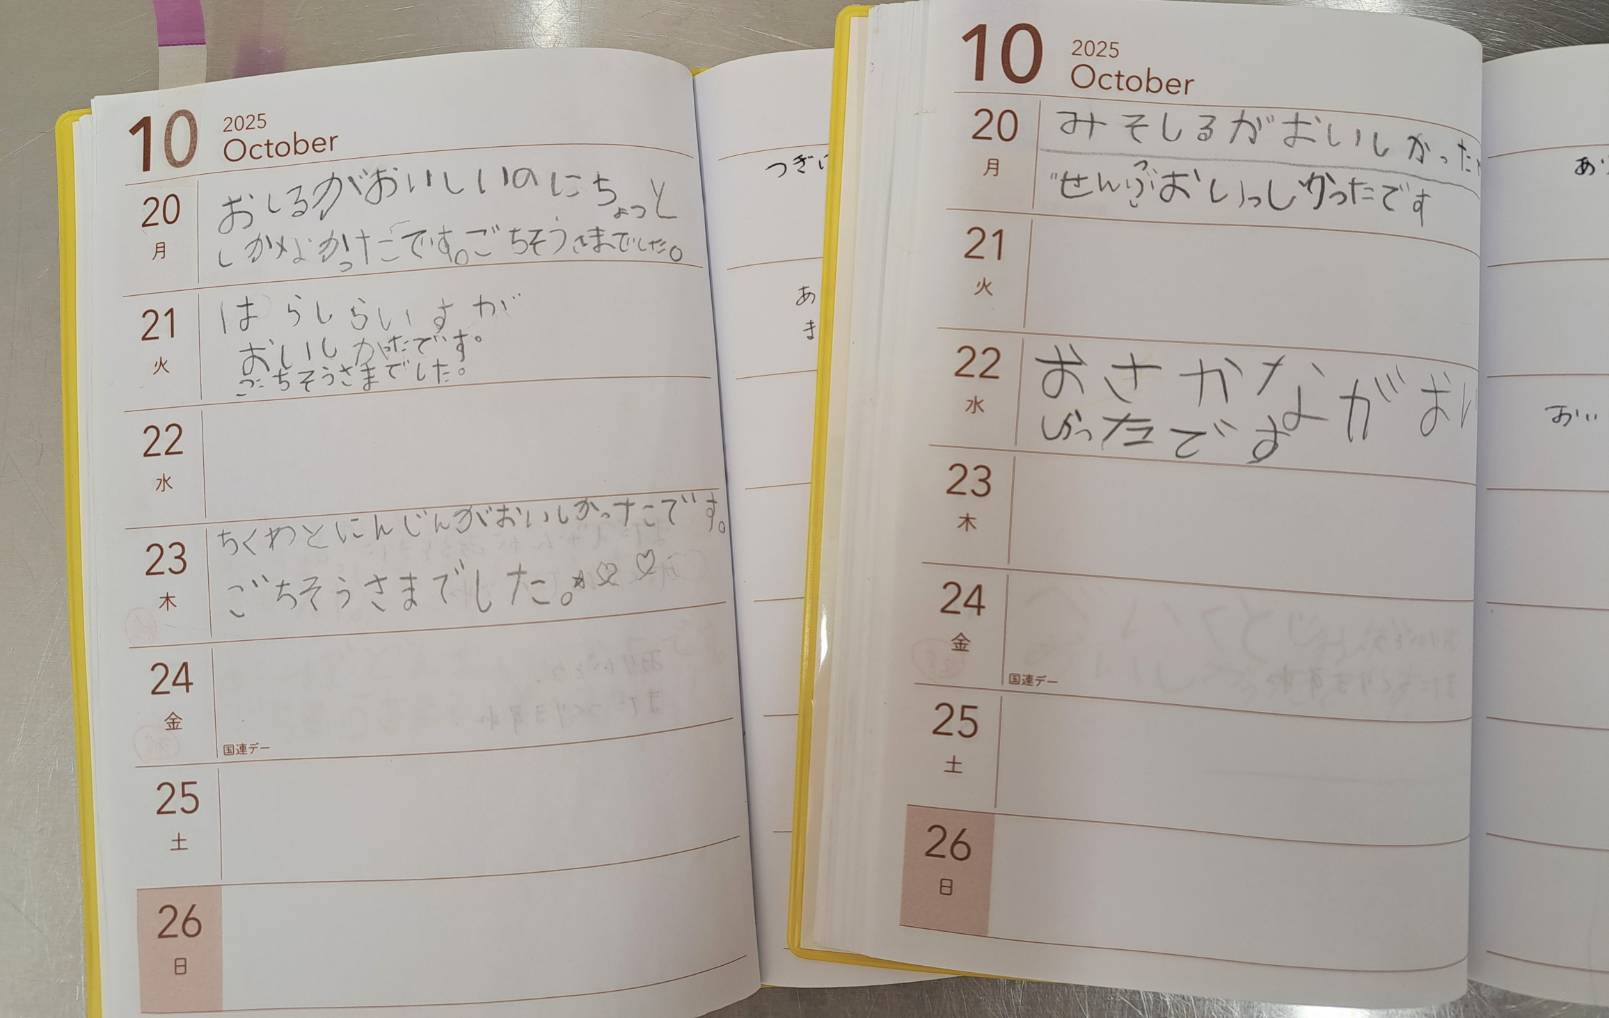 10
2025
October
20
月
おしるがおいしいのにちょっと
しかなかったです。ごちそうさまでした。
21
火
はらしらいすが
おいしかったです。
ごちそうさまでした。
22
水
23
木
ちくわとにんじんがおいしかったです。
ごちそうさまでした。
24
金
国連デー
25
土
26
日
つぎに
あ
ま
10
2025
October
20
月
みそしるがおいしかった
ぜんぶおいっしかったです
21
火
22
水
おさかながおい
しかったです
23
木
24
金
国連デー
25
土
26
日
あ
おい